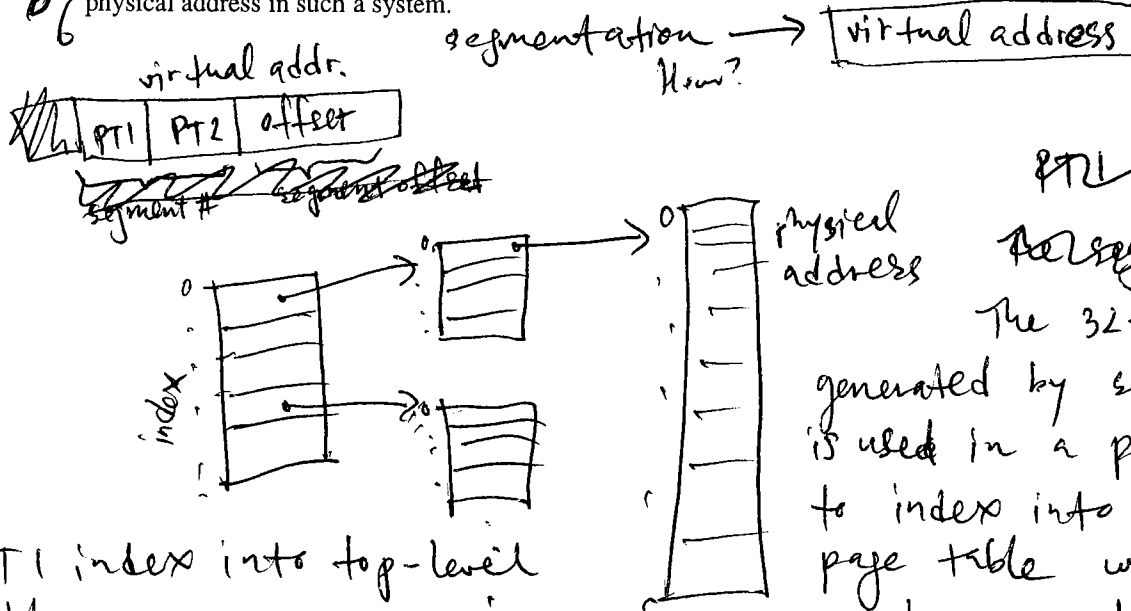 physical address in such a system.
6
segmentation → virtual address
How?
virtual addr.
PT1 PT2 offset
segment # segment offset
PT1
0
0
0
physical
address
The 32-
index
generated by s
is used in a p
0
to index into
T1 index into top-level
page table w